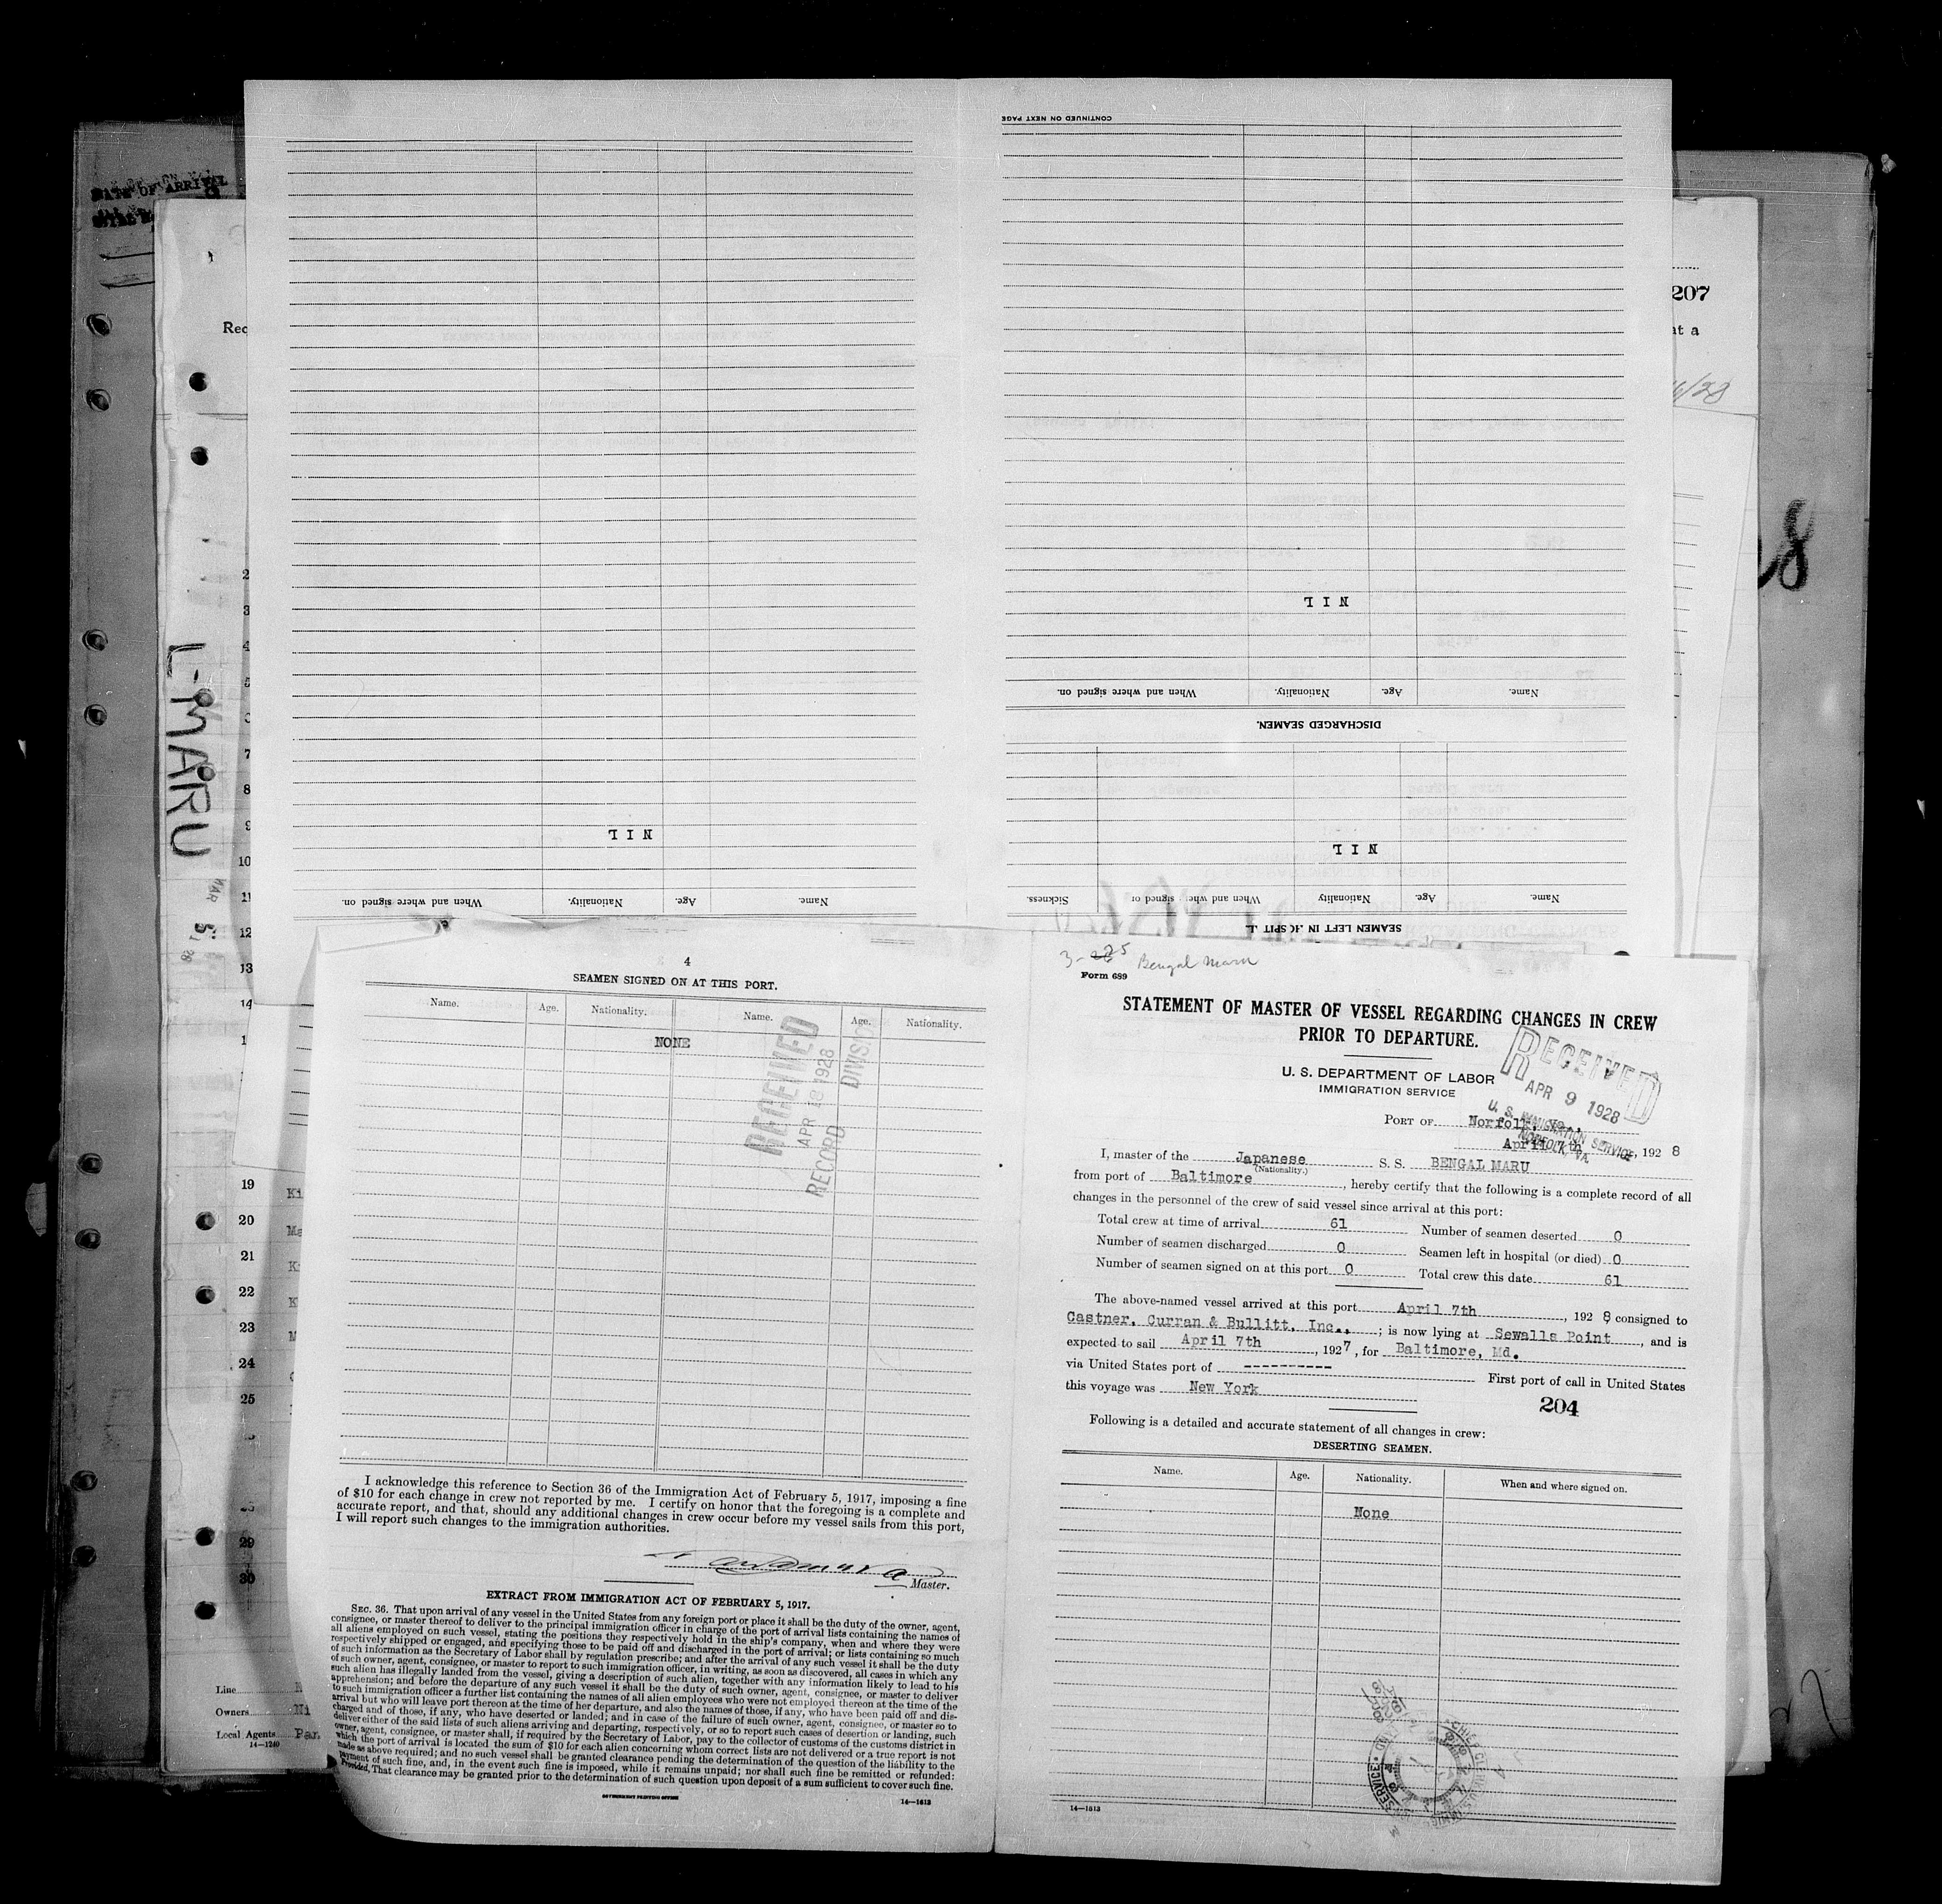 CONTINUED ON NEXT PAGE
DATE OF ARRIVAL
207
Rec
at a
6/28
8
L-MARU
MAR 5
2
3
4
5
7
8
9
10
11
12
13
14
1
NIL
Name. Age. Nationality. When and where signed on.
DISCHARGED SEAMEN.
NIL
Name. Age. Nationality When and where signed or Sickness.
SEAMEN LEFT IN HOSPITAL
NIL
Name. Age. Nationality. When and where signed on.
4
SEAMEN SIGNED ON AT THIS PORT.
Name. Age. Nationality. Name. Age. Nationality.
NONE
RECEIVED
APR 18 1928
RECORD DIVISIO
I acknowledge this reference to Section 36 of the Immigration Act of February 5, 1917, imposing a fine
of $10 for each change in crew not reported by me. I certify on honor that the foregoing is a complete and
accurate report, and that, should any additional changes in crew occur before my vessel sails from this port,
I will report such changes to the immigration authorities.
Master.
EXTRACT FROM IMMIGRATION ACT OF FEBRUARY 5, 1917.
SEC. 36. That upon arrival of any vessel in the United States from any foreign port or place it shall be the duty of the owner, agent,
consignee, or master thereof to deliver to the principal immigration officer in charge of the port of arrival lists containing the names of
all aliens employed on such vessel, stating the positions they respectively hold in the ship's company, when and where they were
respectively shipped or engaged, and specifying those to be paid off and discharged in the port of arrival; or lists containing so much
of such information as the Secretary of Labor shall by regulation prescribe; and after the arrival of any such vessel it shall be the duty
of such owner, agent, consignee, or master to report to such immigration officer, in writing, as soon as discovered, all cases in which any
such alien has illegally landed from the vessel, giving a description of such alien, together with any information likely to lead to his
apprehension; and before the departure of any such vessel it shall be the duty of such owner, agent, consignee, or master to deliver
to such immigration officer a further list containing the names of all alien employees who were not employed thereon at the time of the
arrival but who will leave port thereon at the time of her departure, and also the names of those, if any, who have been paid off and dis-
charged and of those, if any, who have deserted or landed; and in case of the failure of such owner, agent, consignee, or master so to
deliver either of the said lists of such aliens arriving and departing, respectively, or so to report such cases of desertion or landing, such
owner, agent, consignee, or master shall, if required by the Secretary of Labor, pay to the collector of customs of the customs district in
which the port of arrival is located the sum of $10 for each alien concerning whom correct lists are not delivered or a true report is not
made as above required; and no such vessel shall be granted clearance pending the determination of the question of the liability to the
payment of such fine, and, in the event such fine is imposed, while it remains unpaid; nor shall such fine be remitted or refunded:
Provided, That clearance may be granted prior to the determination of such question upon deposit of a sum sufficient to cover such fine.
GOVERNMENT PRINTING OFFICE
14—1613
3- 5 Bengal Maru
Form 689
STATEMENT OF MASTER OF VESSEL REGARDING CHANGES IN CREW
PRIOR TO DEPARTURE.
U. S. DEPARTMENT OF LABOR
IMMIGRATION SERVICE
RECEIVED
APR 9 1928
U. S. IMMIGRATION SERVICE
NORFOLK, VA.
PORT OF Norfolk, Va.,
April 7th, 1928
I, master of the Japanese S. S. BENGAL MARU
(Nationality.)
from port of Baltimore, hereby certify that the following is a complete record of all
changes in the personnel of the crew of said vessel since arrival at this port:
Total crew at time of arrival 61 Number of seamen deserted 0
Number of seamen discharged 0 Seamen left in hospital (or died) 0
Number of seamen signed on at this port 0 Total crew this date 61
The above-named vessel arrived at this port April 7th, 1928 consigned to
Castner, Curran & Bullitt, Inc., ; is now lying at Sewalls Point, and is
expected to sail April 7th, 1927, for Baltimore, Md.
via United States port of ---------- First port of call in United States
this voyage was New York
204
Following is a detailed and accurate statement of all changes in crew:
DESERTING SEAMEN.
Name. Age. Nationality. When and where signed on.
None
14—1613
19
20
21
22
23
24
25
29
30
Line
Owners Ni
Local Agents Par
14—1240